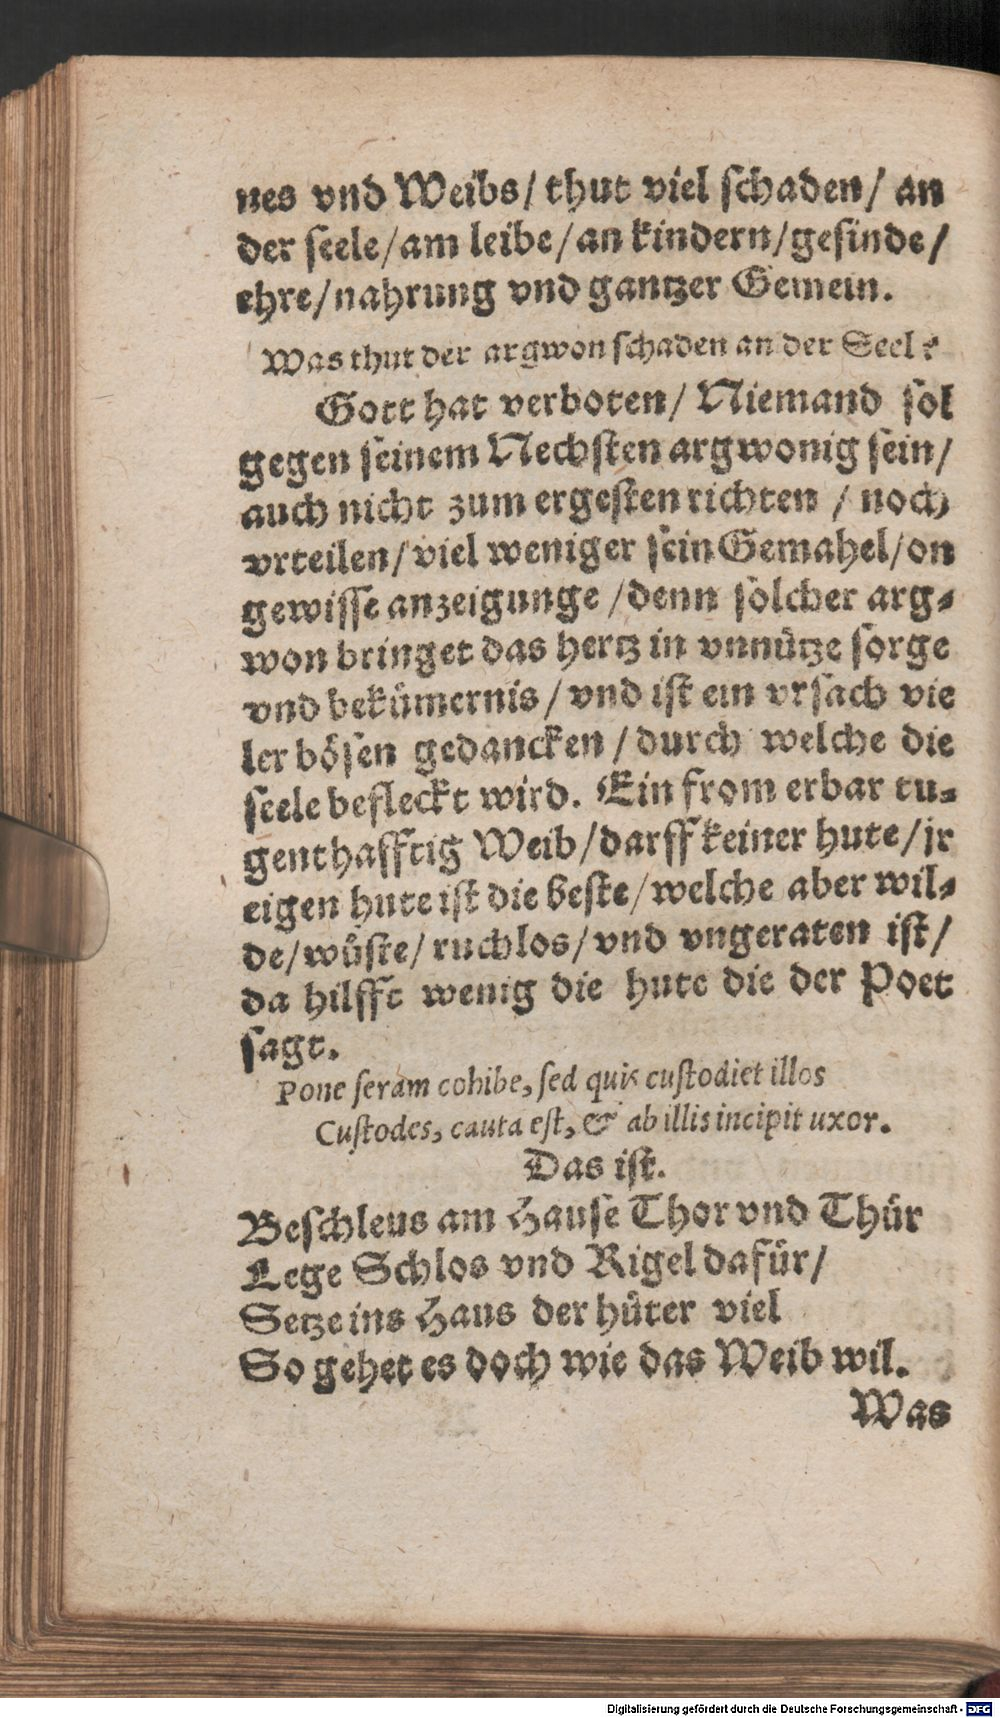 nes vnd Weibs/ thut viel schaden/ an
der seele/am leibe/an kindern/gesinde/
ehre/nahrung vnd gantzer Gemein.
Was thut der argwon schaden an der Seel?
Gott hat verboten/ Niemand sol
gegen seinem Nechsten argwonig sein/
auch nicht zum ergesten richten / noch
vrteilen/ viel weniger sein Gemahel/on
gewisse anzeigunge /denn solcher arg⸗
won bringet das hertz in vnnütze sorge
vnd bekümernis/ vnd ist ein vrsach vie
ler bösen gedancken /durch welche die
seele befleckt wird. Ein from erbar tu⸗
genthafftig Weib/darff keiner hute/jr
eigen hute ist die beste/welche aber wil⸗
de/wüste/ ruchlos/ vnd vngeraten ist/
da hilfft wenig die hute die der Poet
sagt.
Pone seram cohibe, sed quis custodiet illos
Custodes, cauta est, & ab illis incipit uxor.
Das ist.
Beschleus am Hause Thor vnd Thür
Lege Schlos vnd Rigel dafür/
Setze ins Haus der hüter viel
So gehet es doch wie das Weib wil.
Was
Digitalisierung gefördert durch die Deutsche Forschungsgemeinschaft - DFG